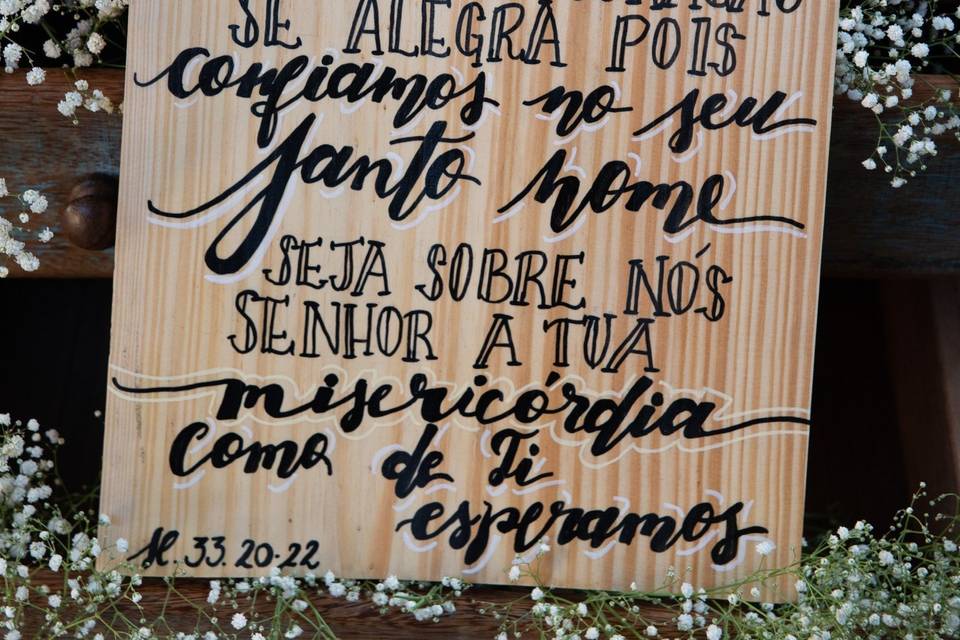 SE ALEGRA POIS
confiamos no seu
santo nome
SEJA SOBRE NÓS
SENHOR A TUA
misericórdia
como de Ti
esperamos
Sl. 33. 20-22